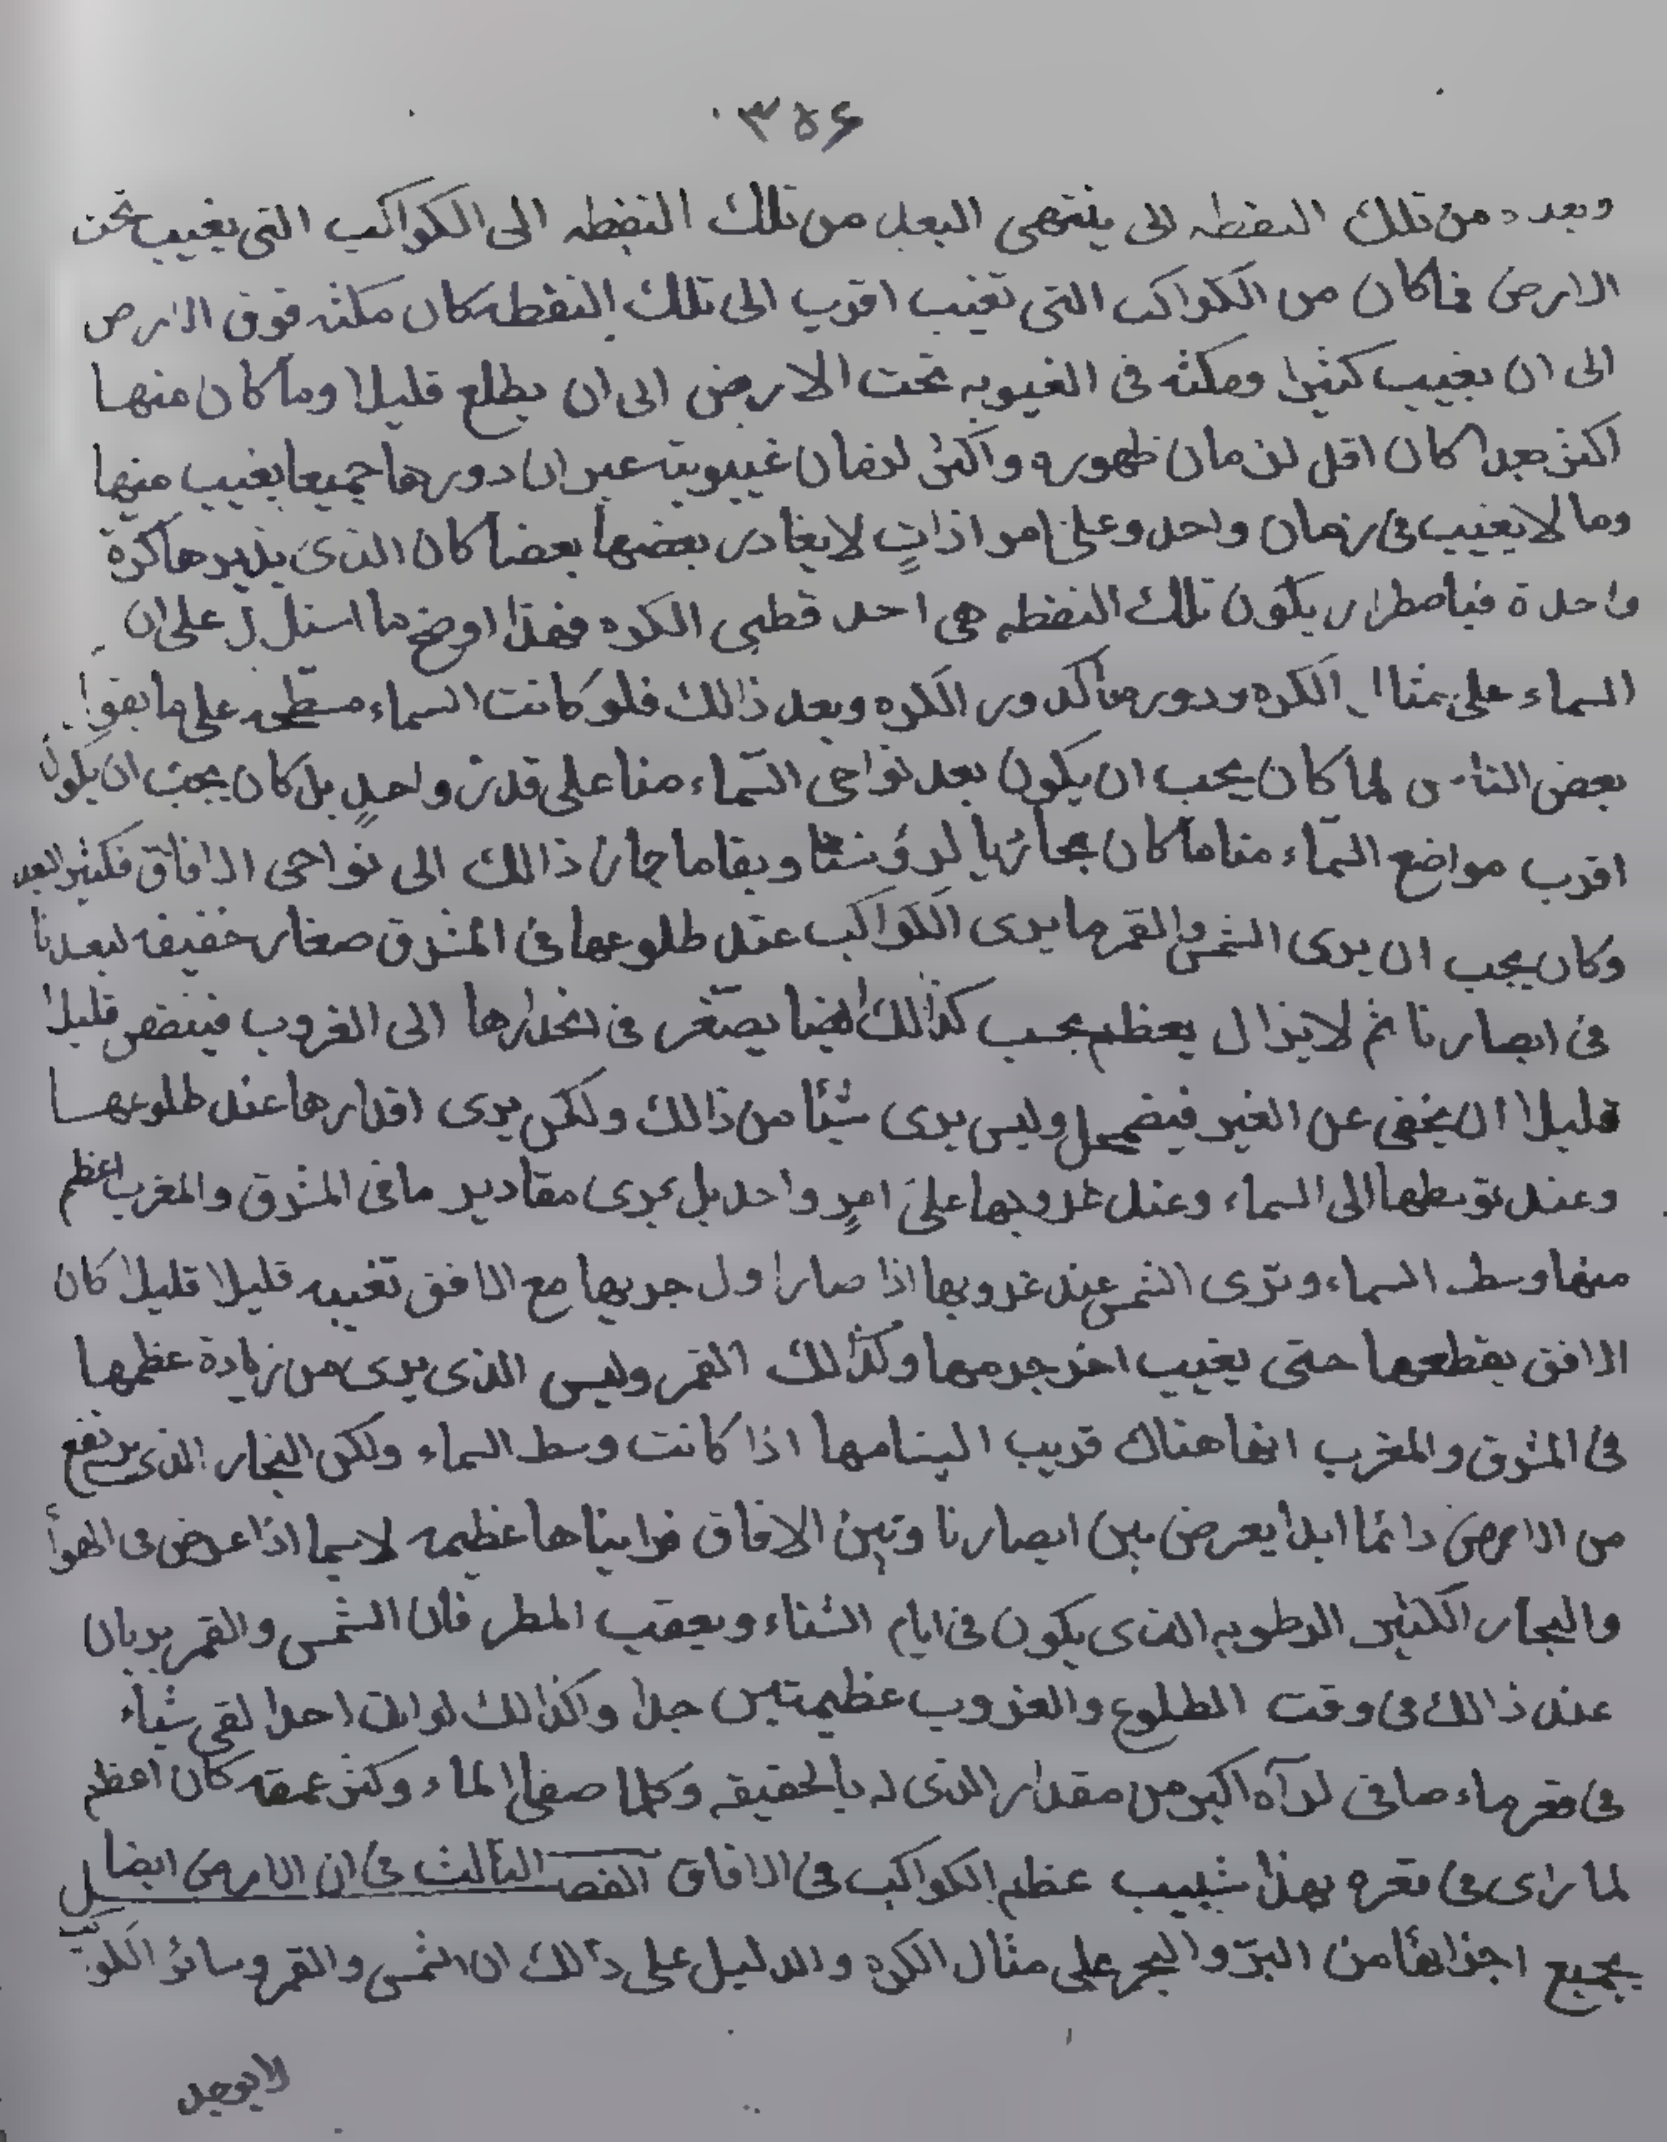 ٣٥٦
وبعده من تلك النقطه الى ينتهى البعد من تلك النقطه الى الكواكب التى يغيب تحت
الارض فما كان من الكواكب التى تغيب اقرب الى تلك النقطه كان مكثه فوق الارض
الى ان يغيب كثيرا ومكثه فى الغيوبه تحت الارض الى ان يطلع قليلا وما كان منها
اكثر بعدا كان اقل لزمان ظهوره واكثر لزمان غيبوبته غير ان دورها جميعا يغيب منها
وما لا يغيب فى زمان واحد وعلى امر اذاتٍ لا يغادر بعضها بعضا كان الذى يديرها كرة
واحدة فباضطرار يكون تلك النقطه هى احد قطبى الكره فهذا اوضح ما استدل على ان
السماء على مثال الكره ودورها كدور الكره وبعد ذالك فلو كانت السماء مسطحه على ما يقو
بعض الناس لما كان يجب ان يكون بعد نواحى السّماء منا على قدر واحدٍ بل كان يجب ان يكون
اقرب مواضع السّماء منا ما كان محازيا لرؤسنا وبقا ما جاز ذالك الى نواحى الافاق فكثير البعد
وكان يجب ان يرى الشمس والقمر ما يرى الكواكب عند طلوعها فى المشرق صغار خفيفه لبعدنا
فى ابصارنا ثم لا يزال يعظم يجب كذالك ايضا يصّغر فى انحدارها الى الغروب فينقص قليلا
قليلا ان يخفى عن الغير فيضمحل وليس يرى شيئا من ذالك ولكن يرى اقدارها عند طلوعها
وعند توسطها الى السماء وعند غروبها على امرٍ واحد بل يرى مقادير ما فى المشرق والمغرب اعظم
منها وسط السماء وترى الشمس عند غروبها اذا صار اول جربها مع الافق تغيبه قليلا قليلا كان
الافق يقطعها حتى يغيب اخر جرمها وكذلك القمر وليس الذى يرى من زيادة عظمها
فى المشرق والمغرب انها هناك قريب الينا مها اذا كانت وسط السماء ولكن البخار الذى يرتفع
من الارض دائما ابدا يعرض بين ابصارنا وبين الافاق فرايناها عظيمه لاسيما اذا عرض فى الهوأ
والبحار الكثير الرطوبه الذى يكون فى ايام الشتاء وبعقب المطر فان الشمس والقمر يريان
عند ذالك فى وقت الطلوع والغروب عظيمتين جدا وكذالك لو ان احدا لقى شياء
فى قعر ماء صافى لرآه اكبر من مقدار الذى له بالحقيقه وكلما صفا الماء وكثر عمقه كان اعظم
لما راى فى قعره بهذا شبيب عظم الكواكب فى الافاق الفصل الثالث فى ان الارض ايضا
بجميع اجزائها من البرّ والبحر على مثال الكره والدليل على ذالك ان الشمس والقمر وسائر الكواكب
لا يوجد